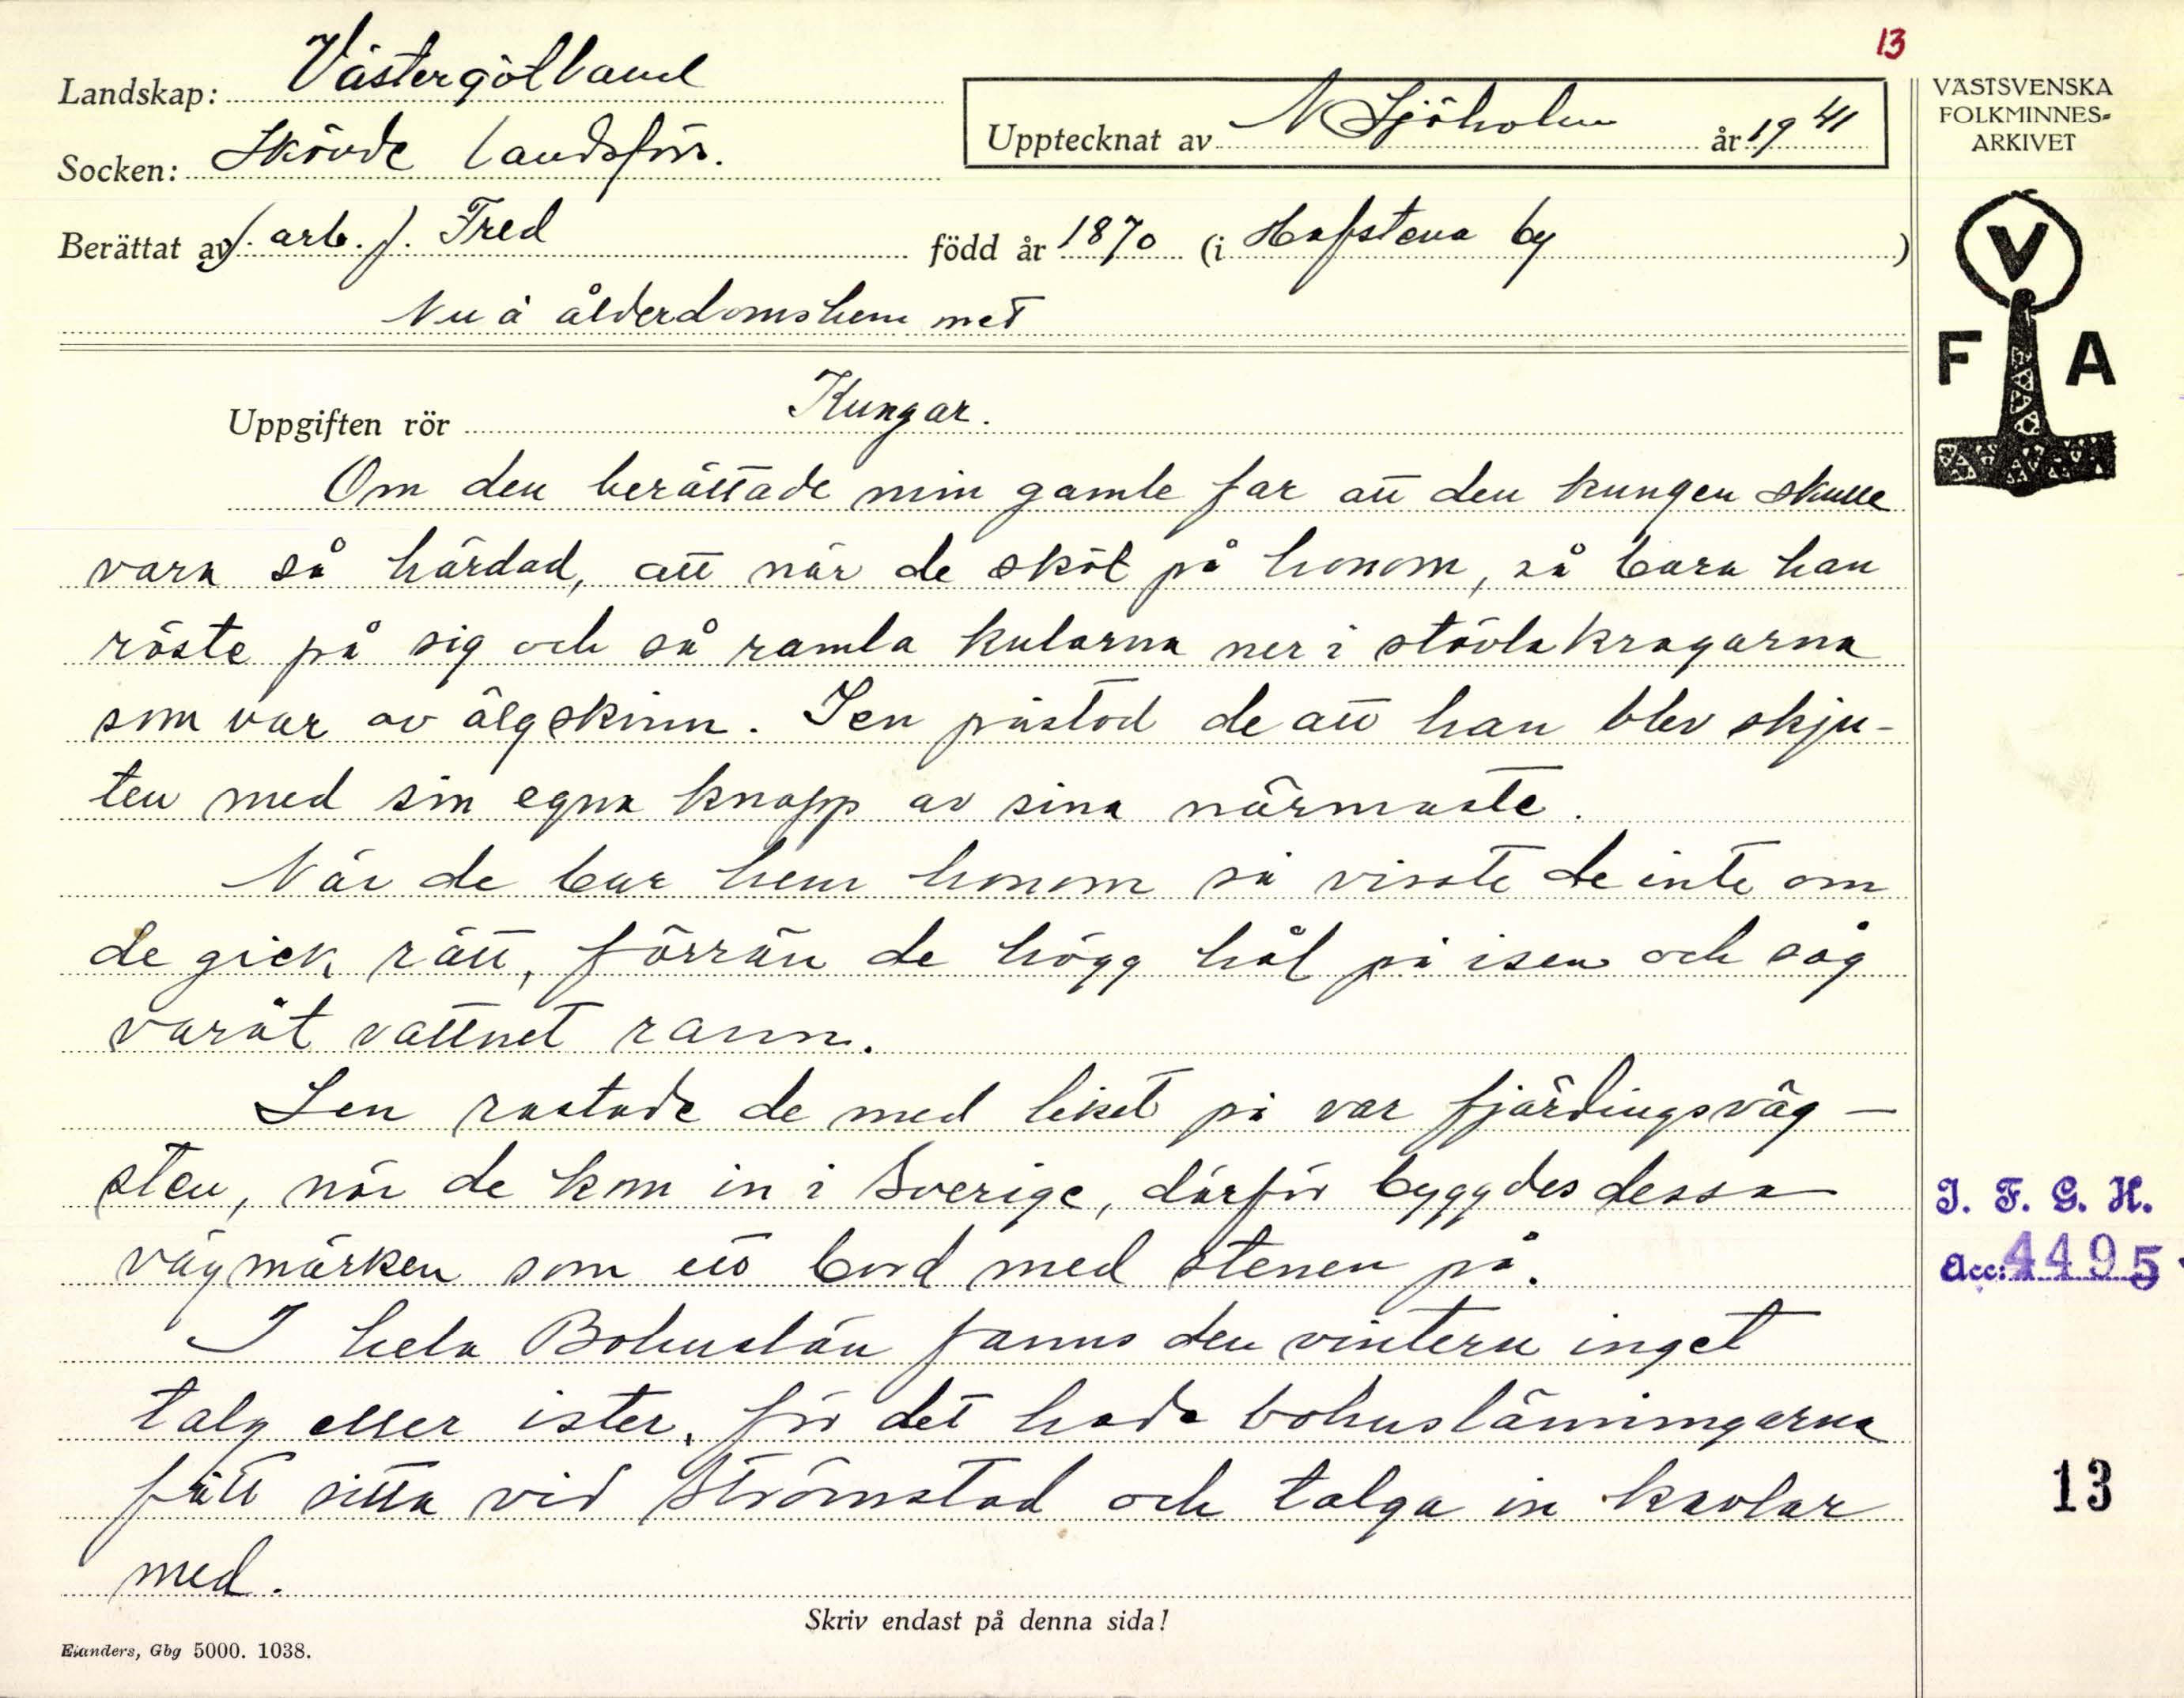 13
Landskap: Västergötland
Socken: Skövde landsförs.
Upptecknat av N Sjöholm år 1941
VÄSTSVENSKA
FOLKMINNES-
ARKIVET
Berättat av f. arb. J. Fred född år 1870 (i Hafstena by)
Nu å ålderdomshemmet
V
F A
Uppgiften rör Kungar.
Om den berättade min gamle far att den kungen skulle
vara så härdad, att när de sköt på honom, så bara han
röste på sig och så ramla kulorna ner i stövlakragarna
som var av älgskinn. Sen påstod de att han blev skju-
ten med sin egna knapp av sina närmaste.
När de bar hem honom så visste de inte om
de gick rätt, förrän de högg hål på isen och såg
varåt vattnet rann.
Sen rastade de med liket på var fjärdingsväg-
sten, när de kom in i Sverige, därför byggdes dessa
vägmärken som ett bord med stenen på.
I hela Bohuslän fanns den vintern inget
talg eller ister, för det hade bohuslänningarna
fått sitta vid Strömstad och talga in kavlar
med.
I. F. G. H.
Acc: 4495
13
Skriv endast på denna sida!
Elanders, Gbg 5000. 1038.